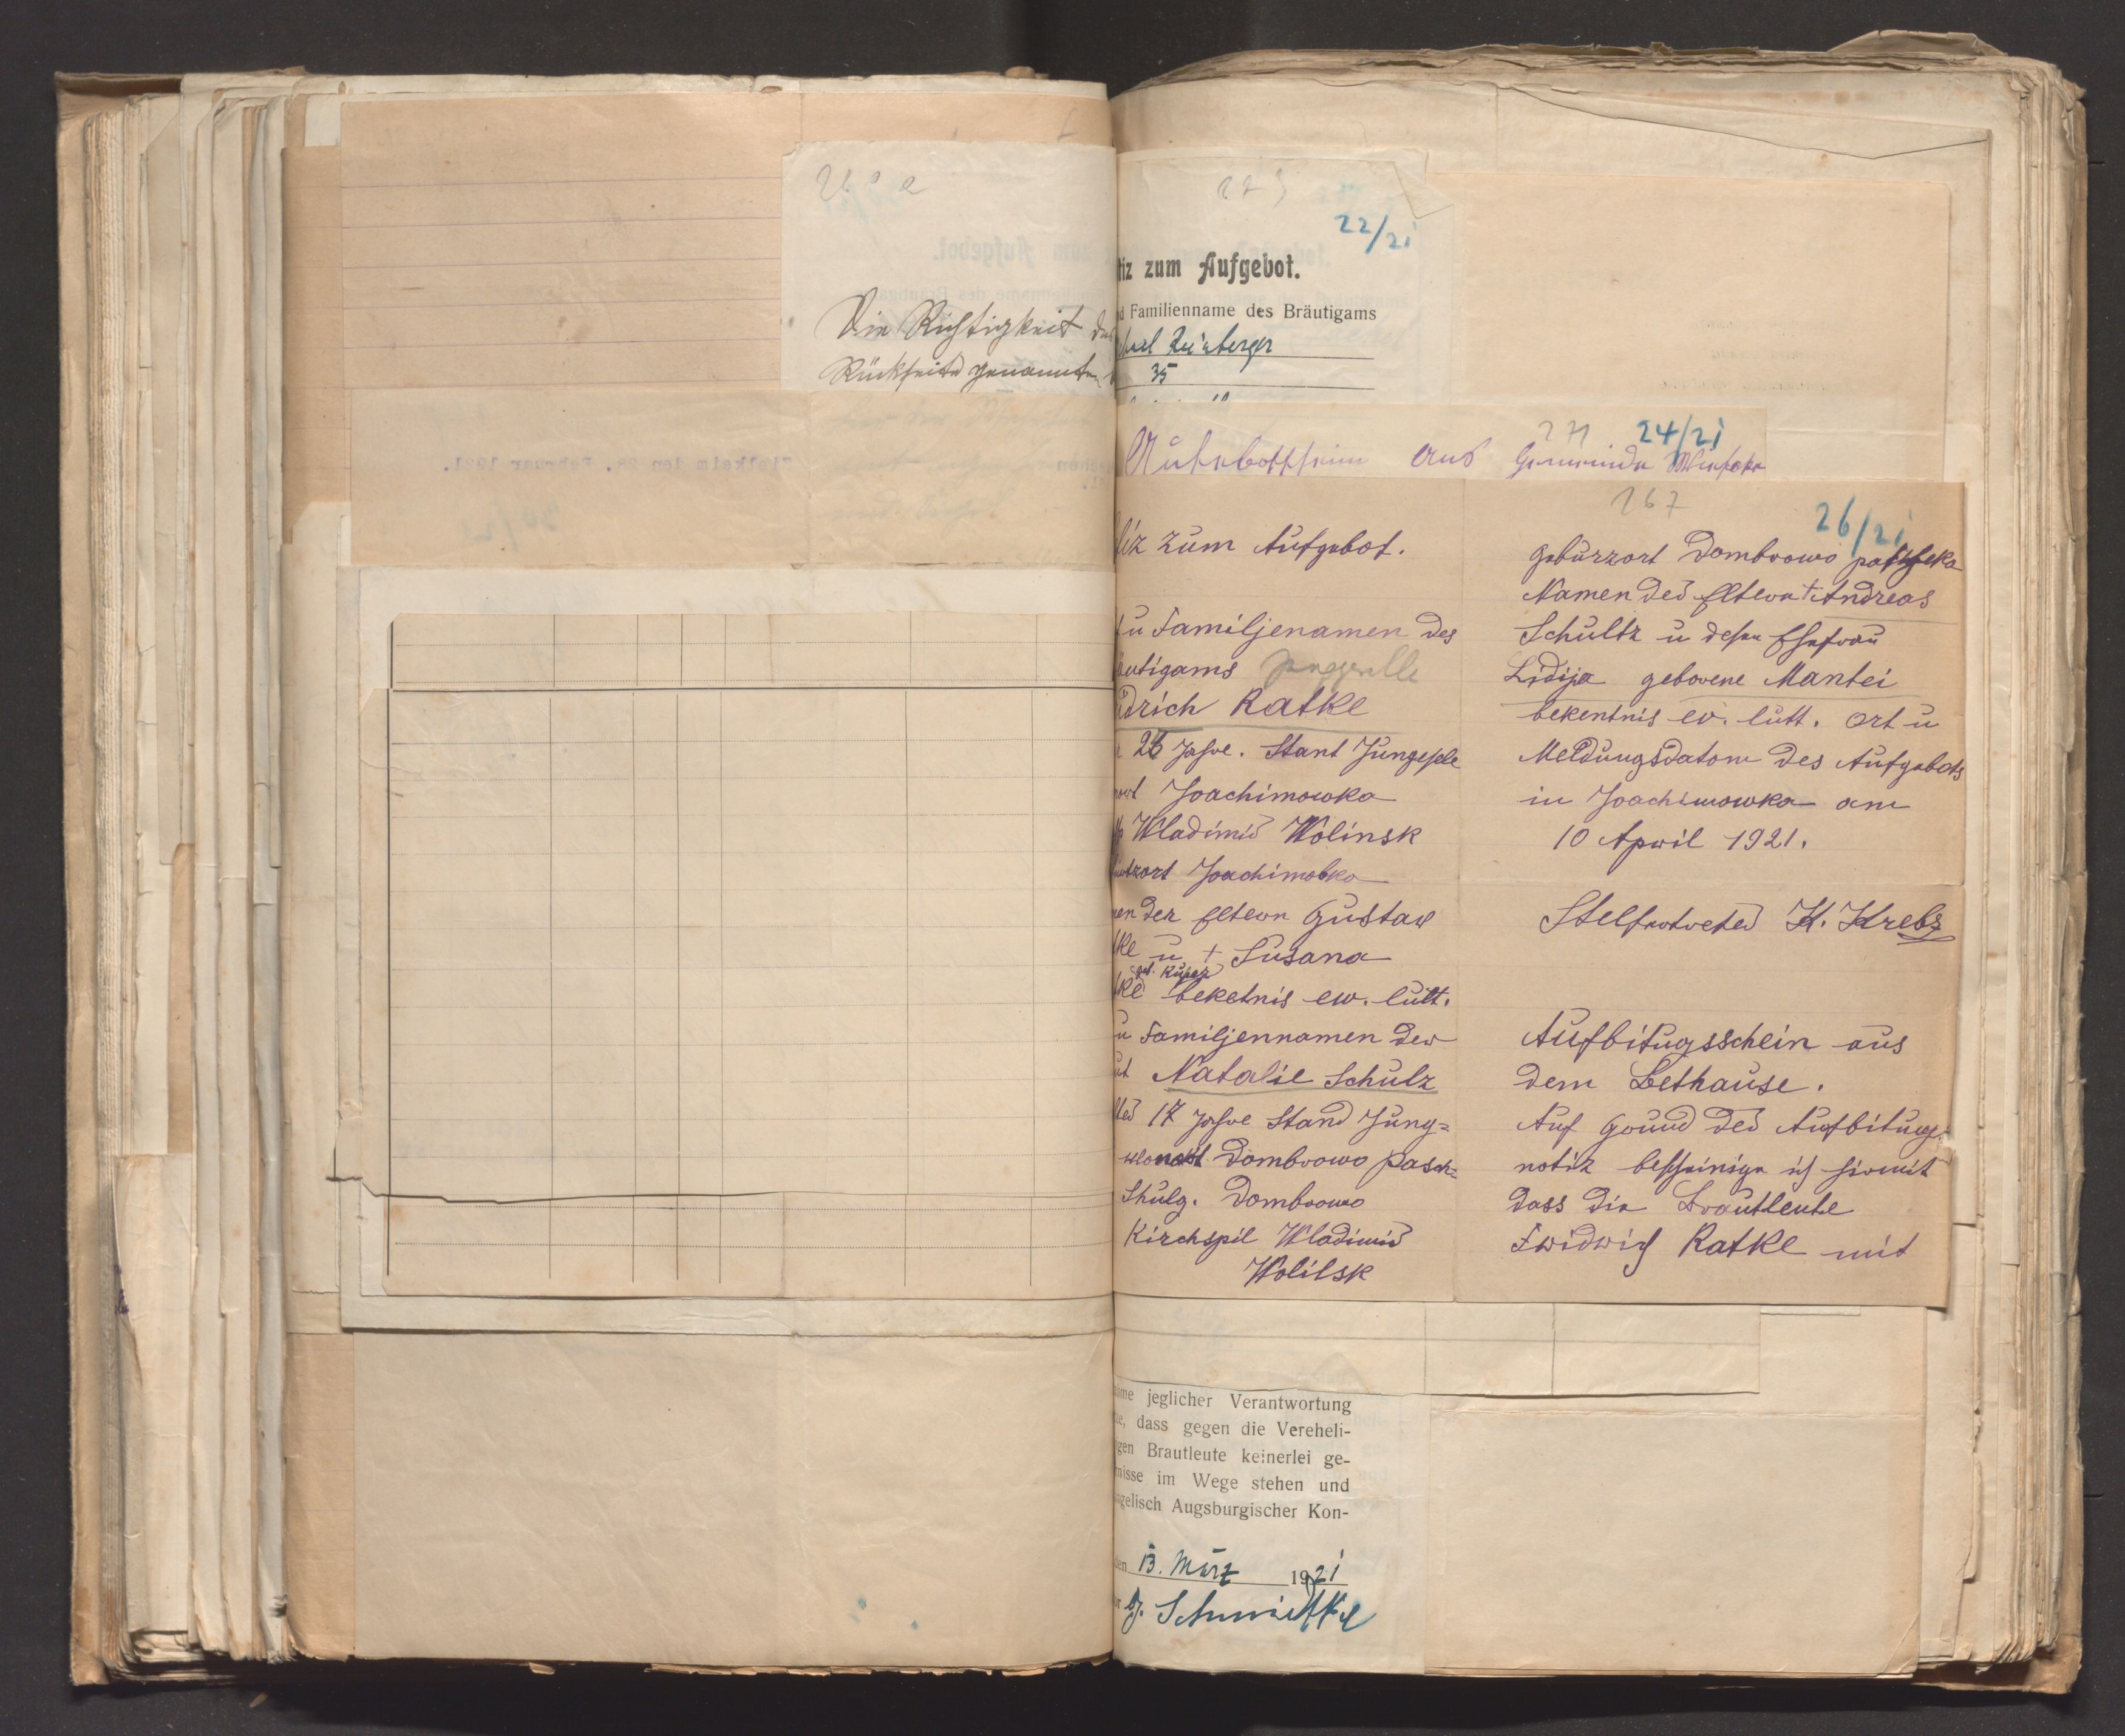 Die Richtigkeit der
Rückseite genannten
273
22/21
tiz zum Aufgebot.
d Familienname des Bräutigams
35
271
24/21
aus Gemeinde
267
26/21
tiz zum Aufgebot.
u Familjenamen des
äutigams
idrich Ratke
Jahre. Stant Jungesele
Joachimowka
Wladimir Wolinsk
Joachimobka
en der Eltern Gustaw
ke u + Susana
geb.
ke beketnis ew. lutt.
u Familjennamen der
ut Natalie Schulz
ter 17 Jahre Stand Jung=
Dombrowo Pasch=
Schulg. Dombrowo
Kirchspil Wladimir
Wolilsk
geburzort Dombrowo
Namen der Eltern + Andreas
Schultz u desen Ehefrau
Lidija geborene Mantei
bekentnis ev. lutt. Ort u
Meldungsdatom des Aufgebots
in Joachimowka am
10 April 1921.
Stelfertreter K. Krebs
Aufbitugsschein aus
dem Bethause.
Auf Grund der Aufbitungs
notiz bescheinige ich hirmit
dass die Brautleute
Fridrich Ratke mit
hme jeglicher Verantwortung
e, dass gegen die Vereheli-
gen Brautleute keinerlei ge-
nisse im Wege stehen und
ngelisch Augsburgischer Kon-
en 13. März 1921
Schmidtke